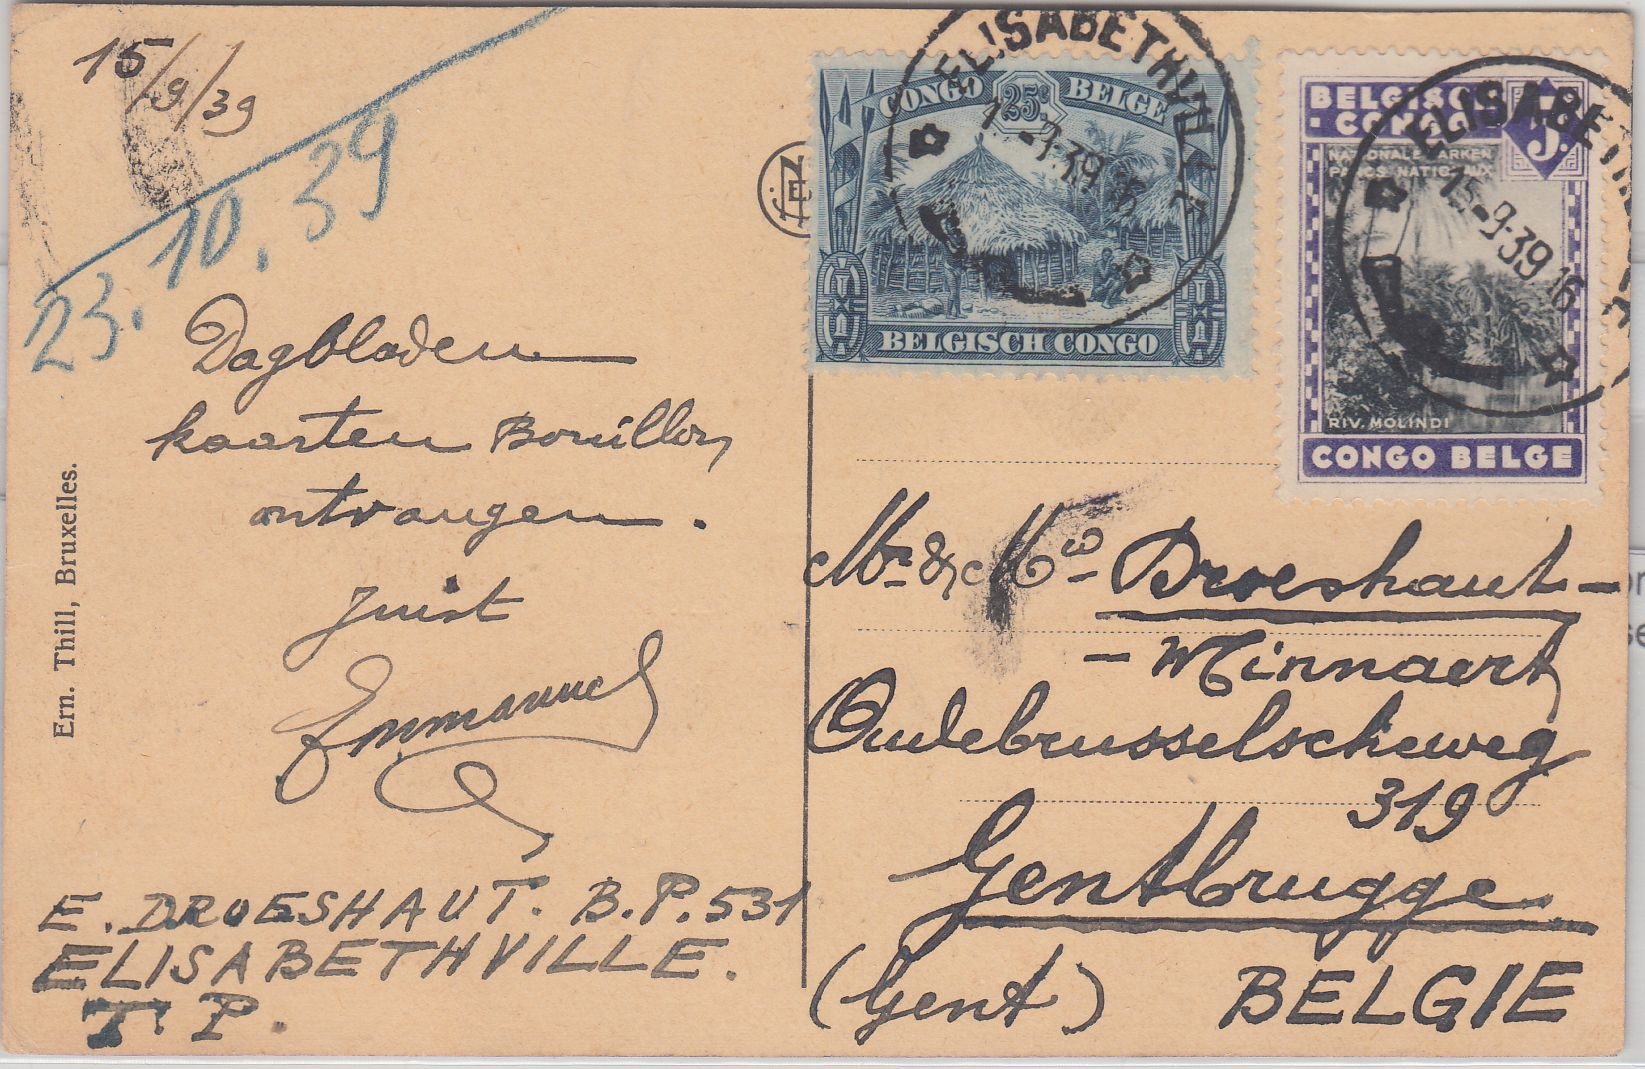 15/9/39
23.10.39
Dagbladen
kaarten Bouillon
ontvangen.
Juist
Emmanuel
E. DROESHAUT. B.P. 531
ELISABETHVILLE.
T P.
Ern. Thill, Bruxelles.
CONGO 25c BELGE
BELGISCH CONGO
ELISABETHVILLE
-9-39 16
BELGISCH
CONGO
5F.
NATIONALE PARKEN
PARCS NATIONAUX
RIV. MOLINDI
CONGO BELGE
ELISABETHVILLE
15-9-39 16
Mr & Mw Droeshaut-
- Minnaert
Oudebrusselscheweg
319
Gentbrugge
(Gent) BELGIE